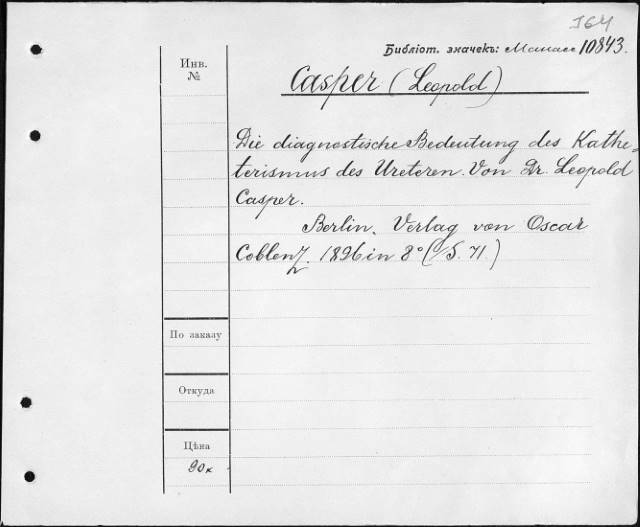 I64
Библіот. значекъ: Манасс 10843.
Инв.
№
Casper (Leopold)
Die diagnostische Bedeutung des Kathe-
terismus des Ureteren. Von Dr. Leopold
Casper.
Berlin. Verlag von Oscar
Coblenz. 1896 in 8° (S. 71.)
По заказу
Откуда
Цѣна
90к